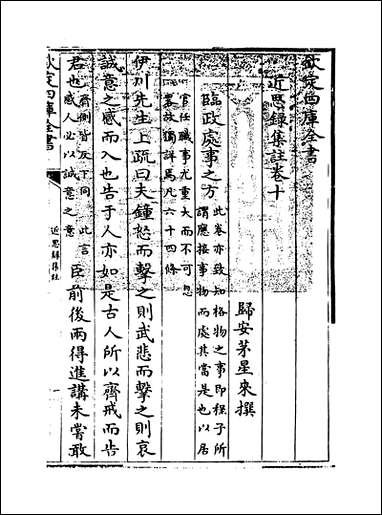 欽定四庫全書
近思錄集註卷十
歸安茅星來撰
臨政處事之方此卷亦致知格物之事即程子所
謂應接事物而處其當是也以居
官任職事尤重大而不可忽
畧故獨詳焉凡六十四條
伊川先生上疏曰夫鐘怒而擊之則武悲而擊之則哀
誠意之感而入也告于人亦如是古人所以齊戒而告
君也齊側皆反下同 此言
感人必以誠意之意臣前後兩得進講未嘗敢
欽定四庫全書
近思錄集註